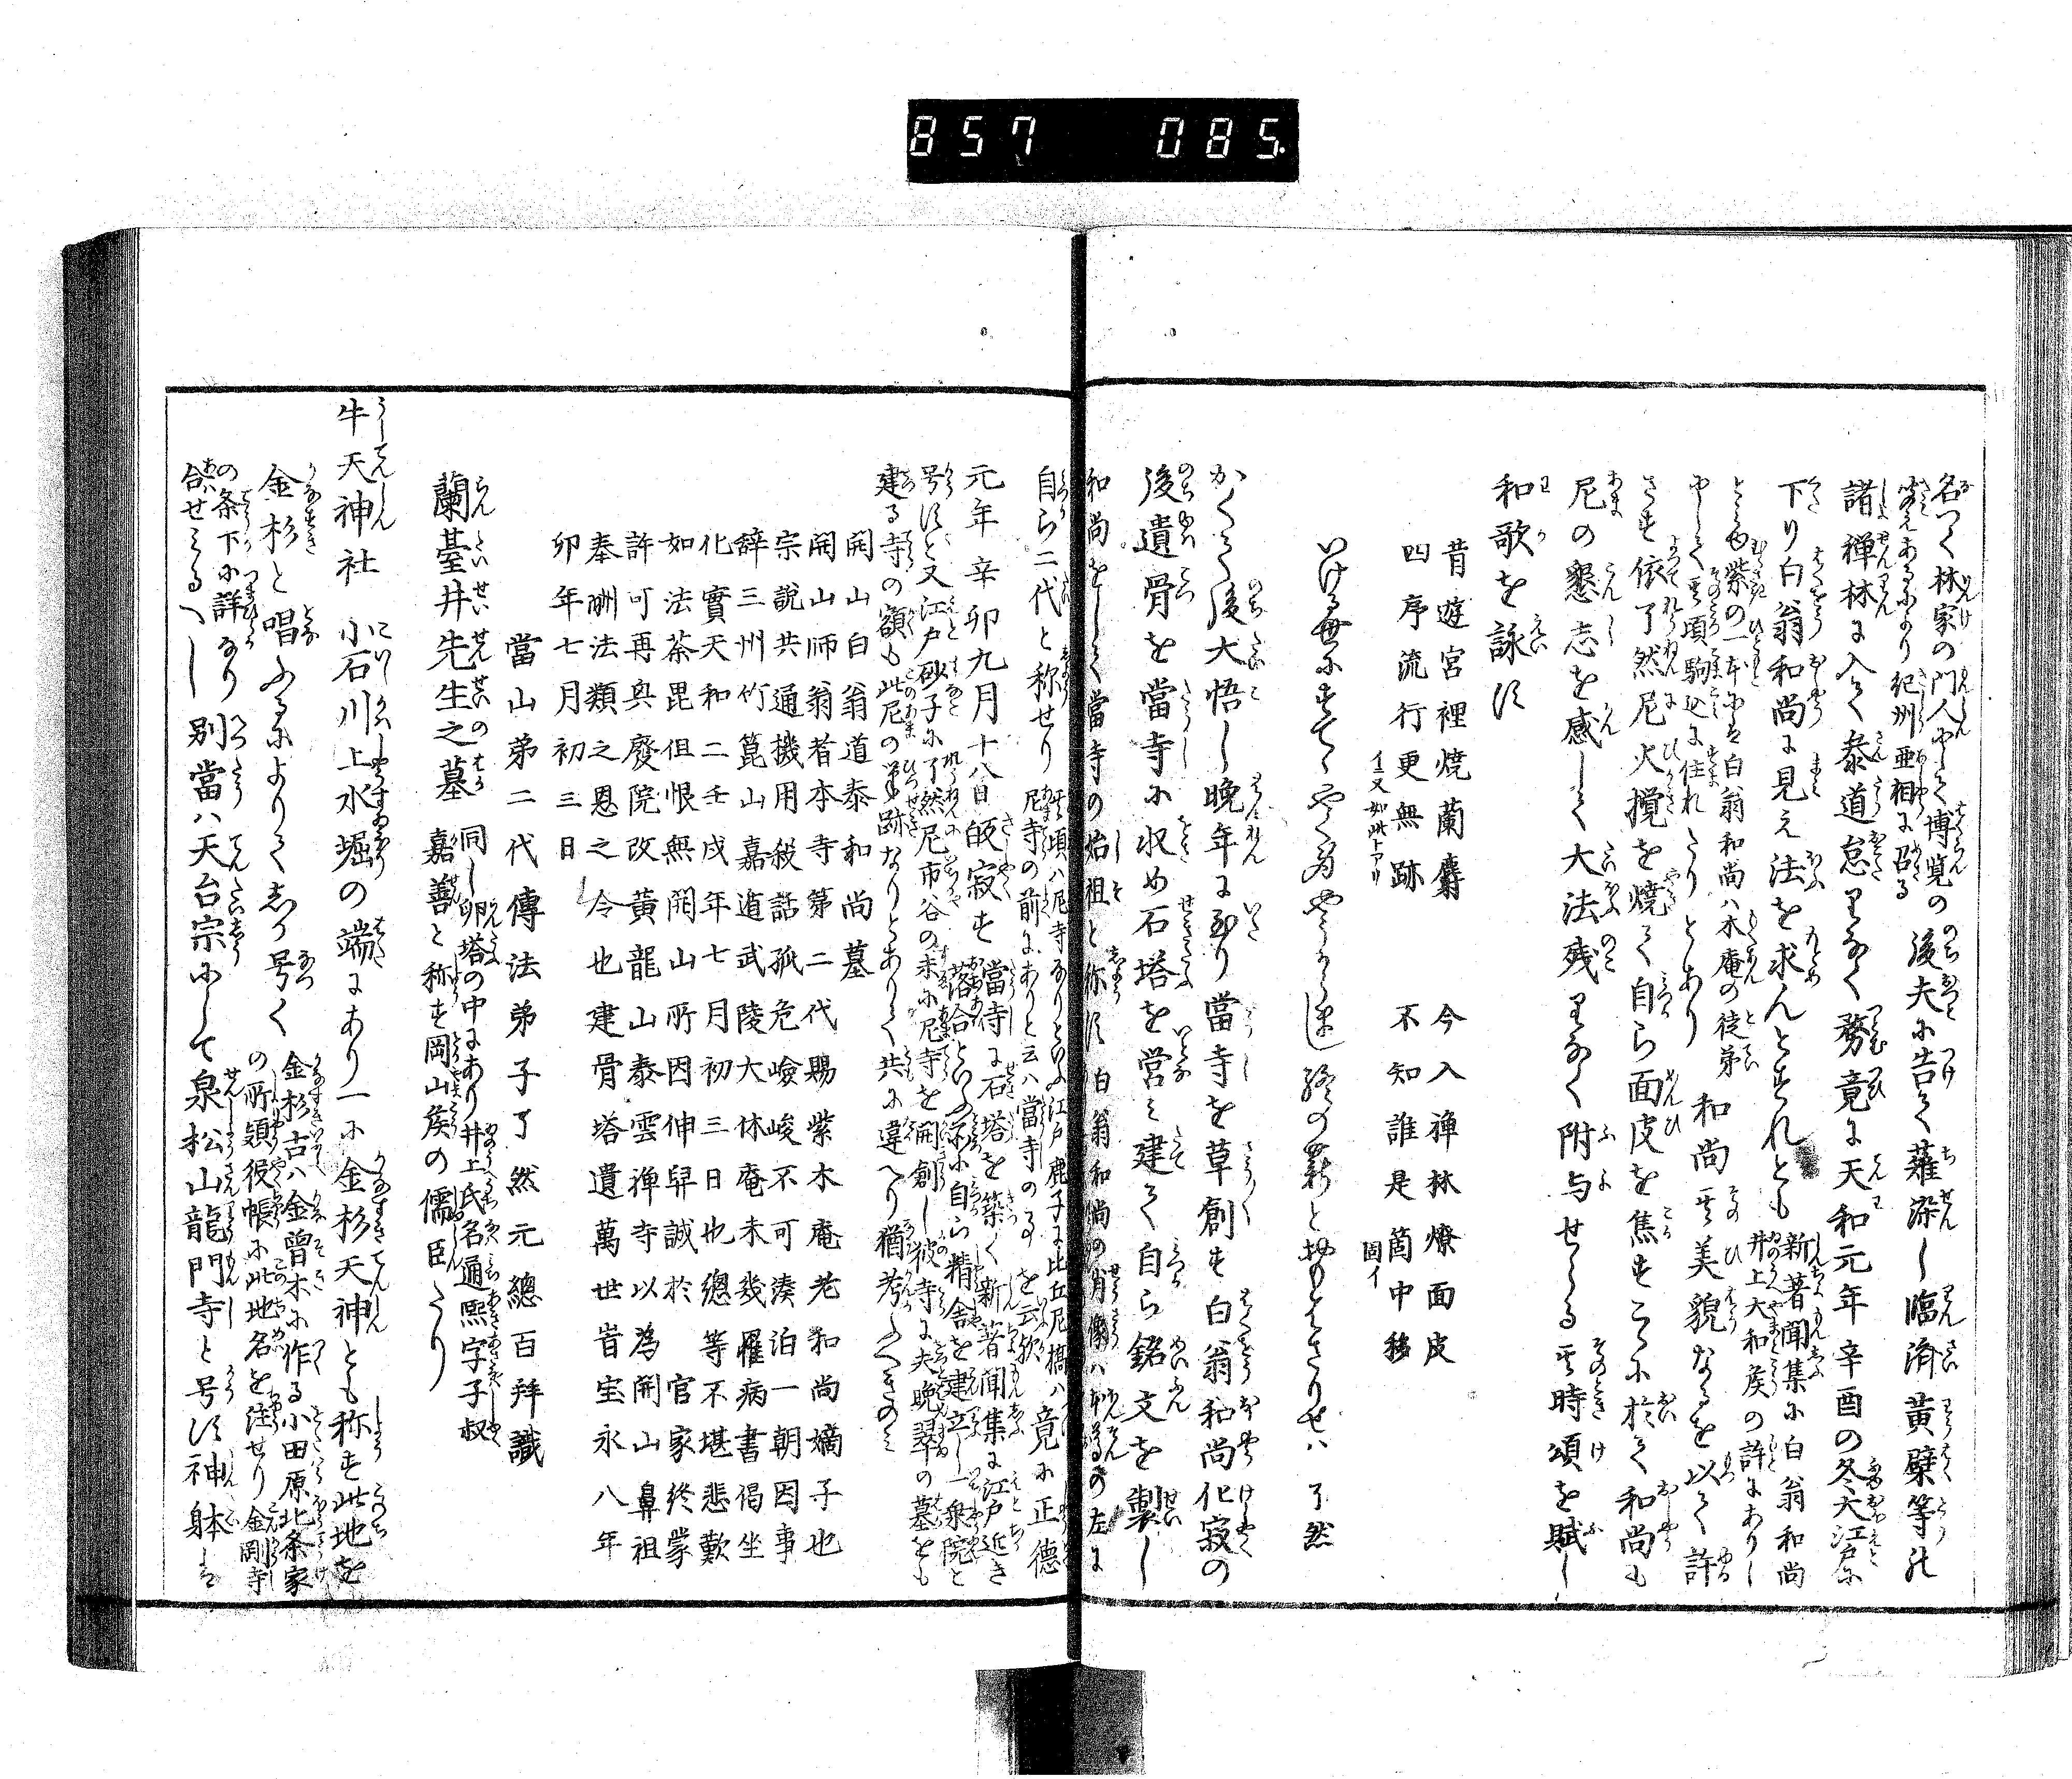 857 085.
名つく林家の門人にして博覧の
聞えあるにより紀州亜相に召る
後夫に告て薙染し臨済黄檗等の
諸禅林に入て参道怠りなく務竟に天和元年辛酉の冬大江戸に
下り白翁和尚に見え法を求んとすれとも
新著聞集に白翁和尚
井上大和侯の許にありし
とも紫の一本には白翁和尚ハ木庵の徒弟
にして其頃駒込に住れたりとあり
和尚其美貌なるを以て許
さす依了然尼火搅を焼て自ら面皮を焦すこゝに於て和尚も
尼の懇志を感して大法残りなく附与せらる其時頌を賦し
和歌を詠す
昔遊宮裡焼蘭麝 今入禅林燎面皮
四序流行更無跡 不知誰是箇中移
イニ又如此トアリ
箇イ
いける世にすてゝやく身やうからまし終の薪とおもはさりせハ 了然
かくて後大悟し晩年に至り當寺を草創す白翁和尚化寂の
後遺骨を當寺に収め石塔を営み建て自ら銘文を製し
和尚をして當寺の始祖と称す白翁和尚の肖像ハ本尊の左に
自ら二代と称せり
其頃ハ尼寺なりといふ江戸鹿子に比丘尼橋ハ
尼寺の前にありと云ハ當寺の事を云歟
竟に正徳
元年辛卯九月十八日皈寂す
當寺に石塔を築く新著聞集に江戸近き
落合といふ所に自ら精舎を建立し一衆院と
号すと又江戸砂子に了然尼市谷の末に尼寺を開創し彼寺に夫晩翠の墓をも
建る寺の額も此尼の筆跡なりとありて共に違へり猶考ふへきのミ
開山白翁道泰和尚墓
開山師翁者本寺第二代賜紫木庵老和尚嫡子也
宗説共通機用殺話孤危嶮峻不可湊泊一朝因事
辞三州竹箆山嘉遁武陵大休庵未幾罹病書偈坐
化實天和二壬戌年七月初三日也總等不堪悲歎
如法茶毘但恨無開山所因伸舁誠於官家終蒙
許可再興廢院改黄龍山泰雲禅寺以為開山鼻祖
奉酬法類之恩之令也建骨塔遺萬世旹宝永八年
卯年七月初三日
當山第二代傳法弟子了然元總百拜識
蘭臺井先生之墓
同し卵塔の中にあり井上氏名通熙字子叔
嘉善と称す岡山侯の儒臣たり
牛天神社 小石川上水堀の端にあり一に金杉天神とも称す此地を
金杉と唱ふるによりてしか号く
金杉古ハ金曽木に作る小田原北条家
の所領役帳に此地名を注せり金剛寺
の条下に詳なり
合せみるへし
別當ハ天台宗にして泉松山龍門寺と号す神躰は